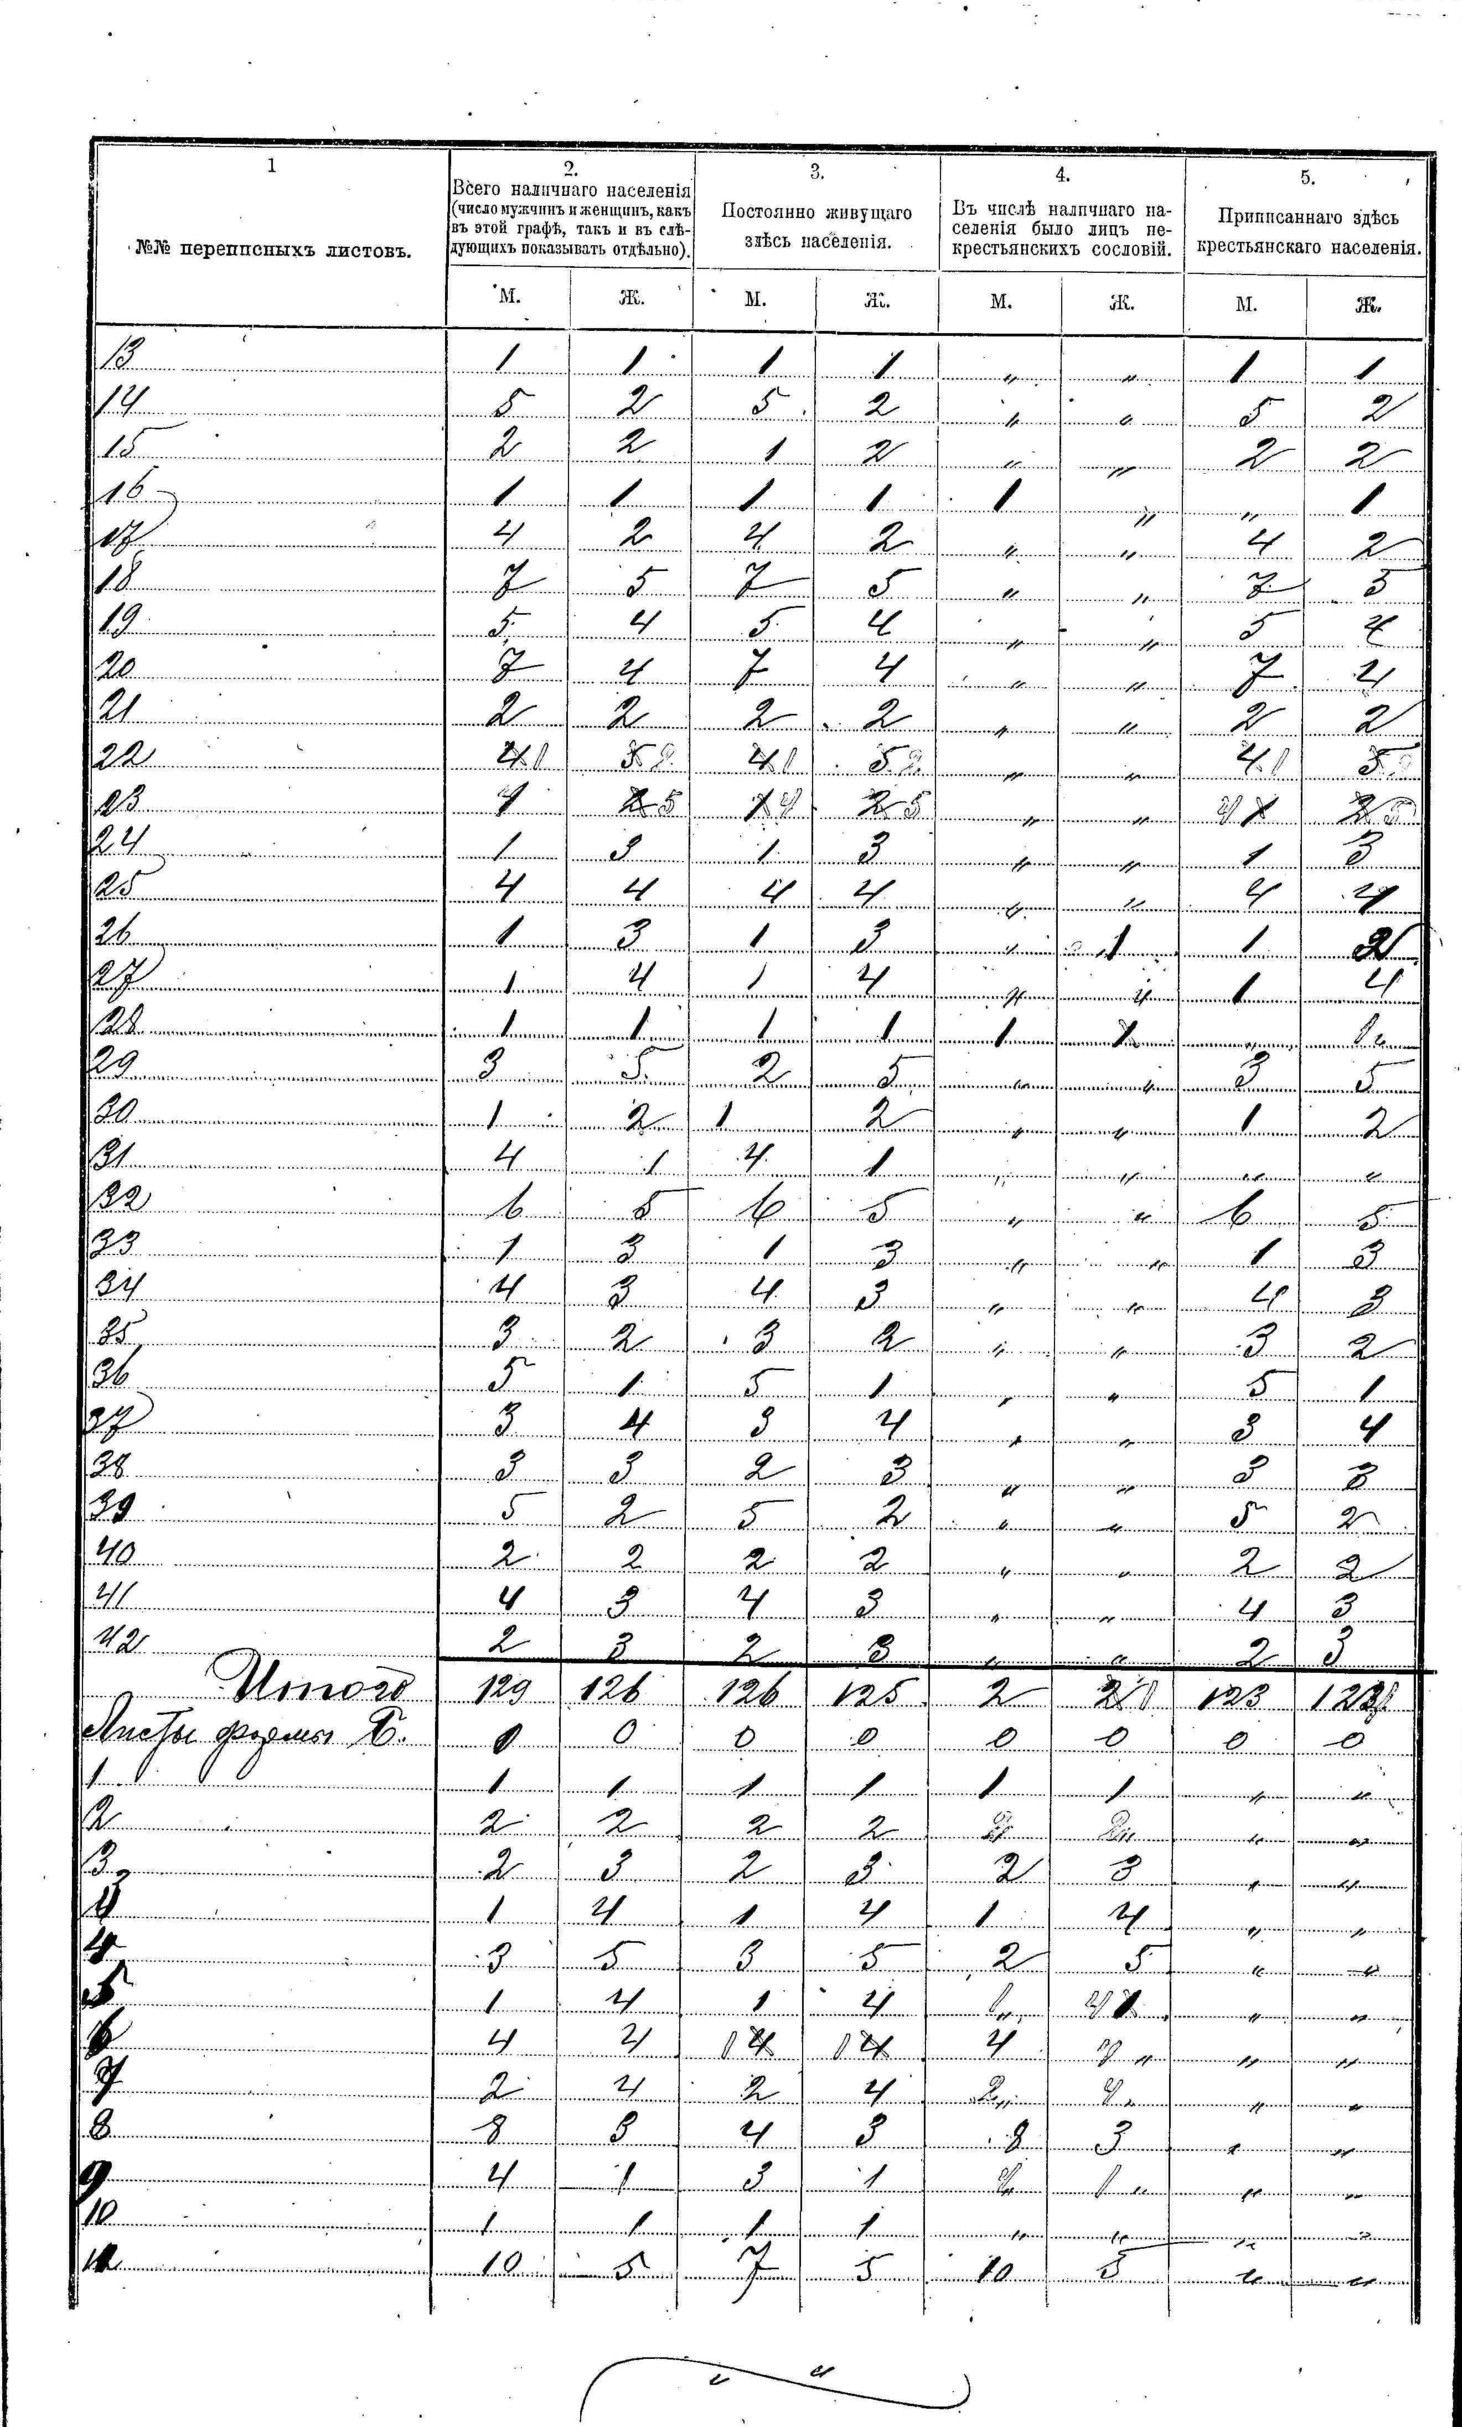 1
2.
3.
4.
5.
№№ переписныхъ листовъ.
Всего наличнаго населенія
(число мужчинъ и женщинъ, какъ
въ этой графѣ, такъ и въ слѣ-
дующихъ показывать отдѣльно).
Постоянно живущаго
здѣсь населенія.
Въ числѣ наличнаго на-
селенія было лицъ не-
крестьянскихъ сословій.
Приписаннаго здѣсь
крестьянскаго населенія.
М. Ж. М. Ж. М. Ж. М. Ж.
13 1 1 1 1 " " 1 1
14 5 2 5 2 " " 5 2
15 2 2 1 2 " " 2 2
16 1 1 1 1 1 " " 1
17 4 2 4 2 " " 4 2
18 7 5 7 5 " " 7 5
19 5 4 5 4 " " 5 4
20 7 4 7 4 " " 7 4
21 2 2 2 2 " " 2 2
22 1 2 1 2 " " 1 2
23 4 5 4 5 " " 4 5
24 1 3 1 3 " " 1 3
25 4 4 4 4 " " 4 4
26 1 3 1 3 " 1 1 2
27 1 4 1 4 " " 1 4
28 1 1 1 1 1 " 1
29 3 5 2 5 " " 3 5
30 1 2 1 2 " " 1 2
31 4 1 4 1 " " " "
32 6 5 6 5 " " 6 5
33 1 3 1 3 " " 1 3
34 4 3 4 3 " " 4 3
35 3 2 3 2 " " 3 2
36 5 1 5 1 " " 5 1
37 3 4 3 4 " " 3 4
38 3 3 2 3 " " 3 3
39 5 2 5 2 " " 5 2
40 2 2 2 2 " " 2 2
41 4 3 4 3 " " 4 3
42 2 3 2 3 " " 2 3
Итого 129 126 126 125 2 1 123
Листы формы Б. 0 0 0 0 0 0 0 0
1 1 1 1 1 1 1 " "
2 2 2 2 2 2 2 " "
3 2 3 2 3 2 3 " "
1 4 1 4 1 4 " "
4 3 5 3 5 2 5 " "
5 1 4 1 4 1 4 " "
6 4 4 4 4 " "
7 2 4 2 4 2 4 " "
8 8 3 4 3 8 3 " "
9 4 1 3 1 1 " "
10 1 1 1 1 " " " "
10 5 7 5 10 5 " "
" "